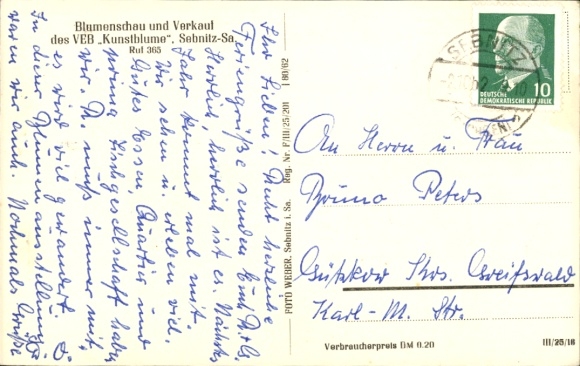 Blumenschau und Verkauf
des VEB „Kunstblume", Sebnitz-Sa.
Ruf 365
Ihr Lieben! Recht herzliche
Feriengrüße senden Euch
Herrlich, herrlich ist es. Nächstes
Jahr kommt mal mit.
Wir sehen u. erleben viel.
Gutes Essen, Quartier und
prima Tischgesellschaft haben
wir. muß immer mit,
es wird viel gewandert.
In dieser Blumenausstellung
waren wir auch. Nochmals Grüße
FOTO WEBER, Sebnitz i. Sa. Reg. Nr. F/III/25/201 I 80/62
SEBNITZ
DEUTSCHE
DEMOKRATISCHE REPUBLIK
10
An Herrn u. Frau
Bruno Peters
Gützkow Krs. Greifswald
Karl-M. Str.
Verbraucherpreis DM 0.20
III/25/18